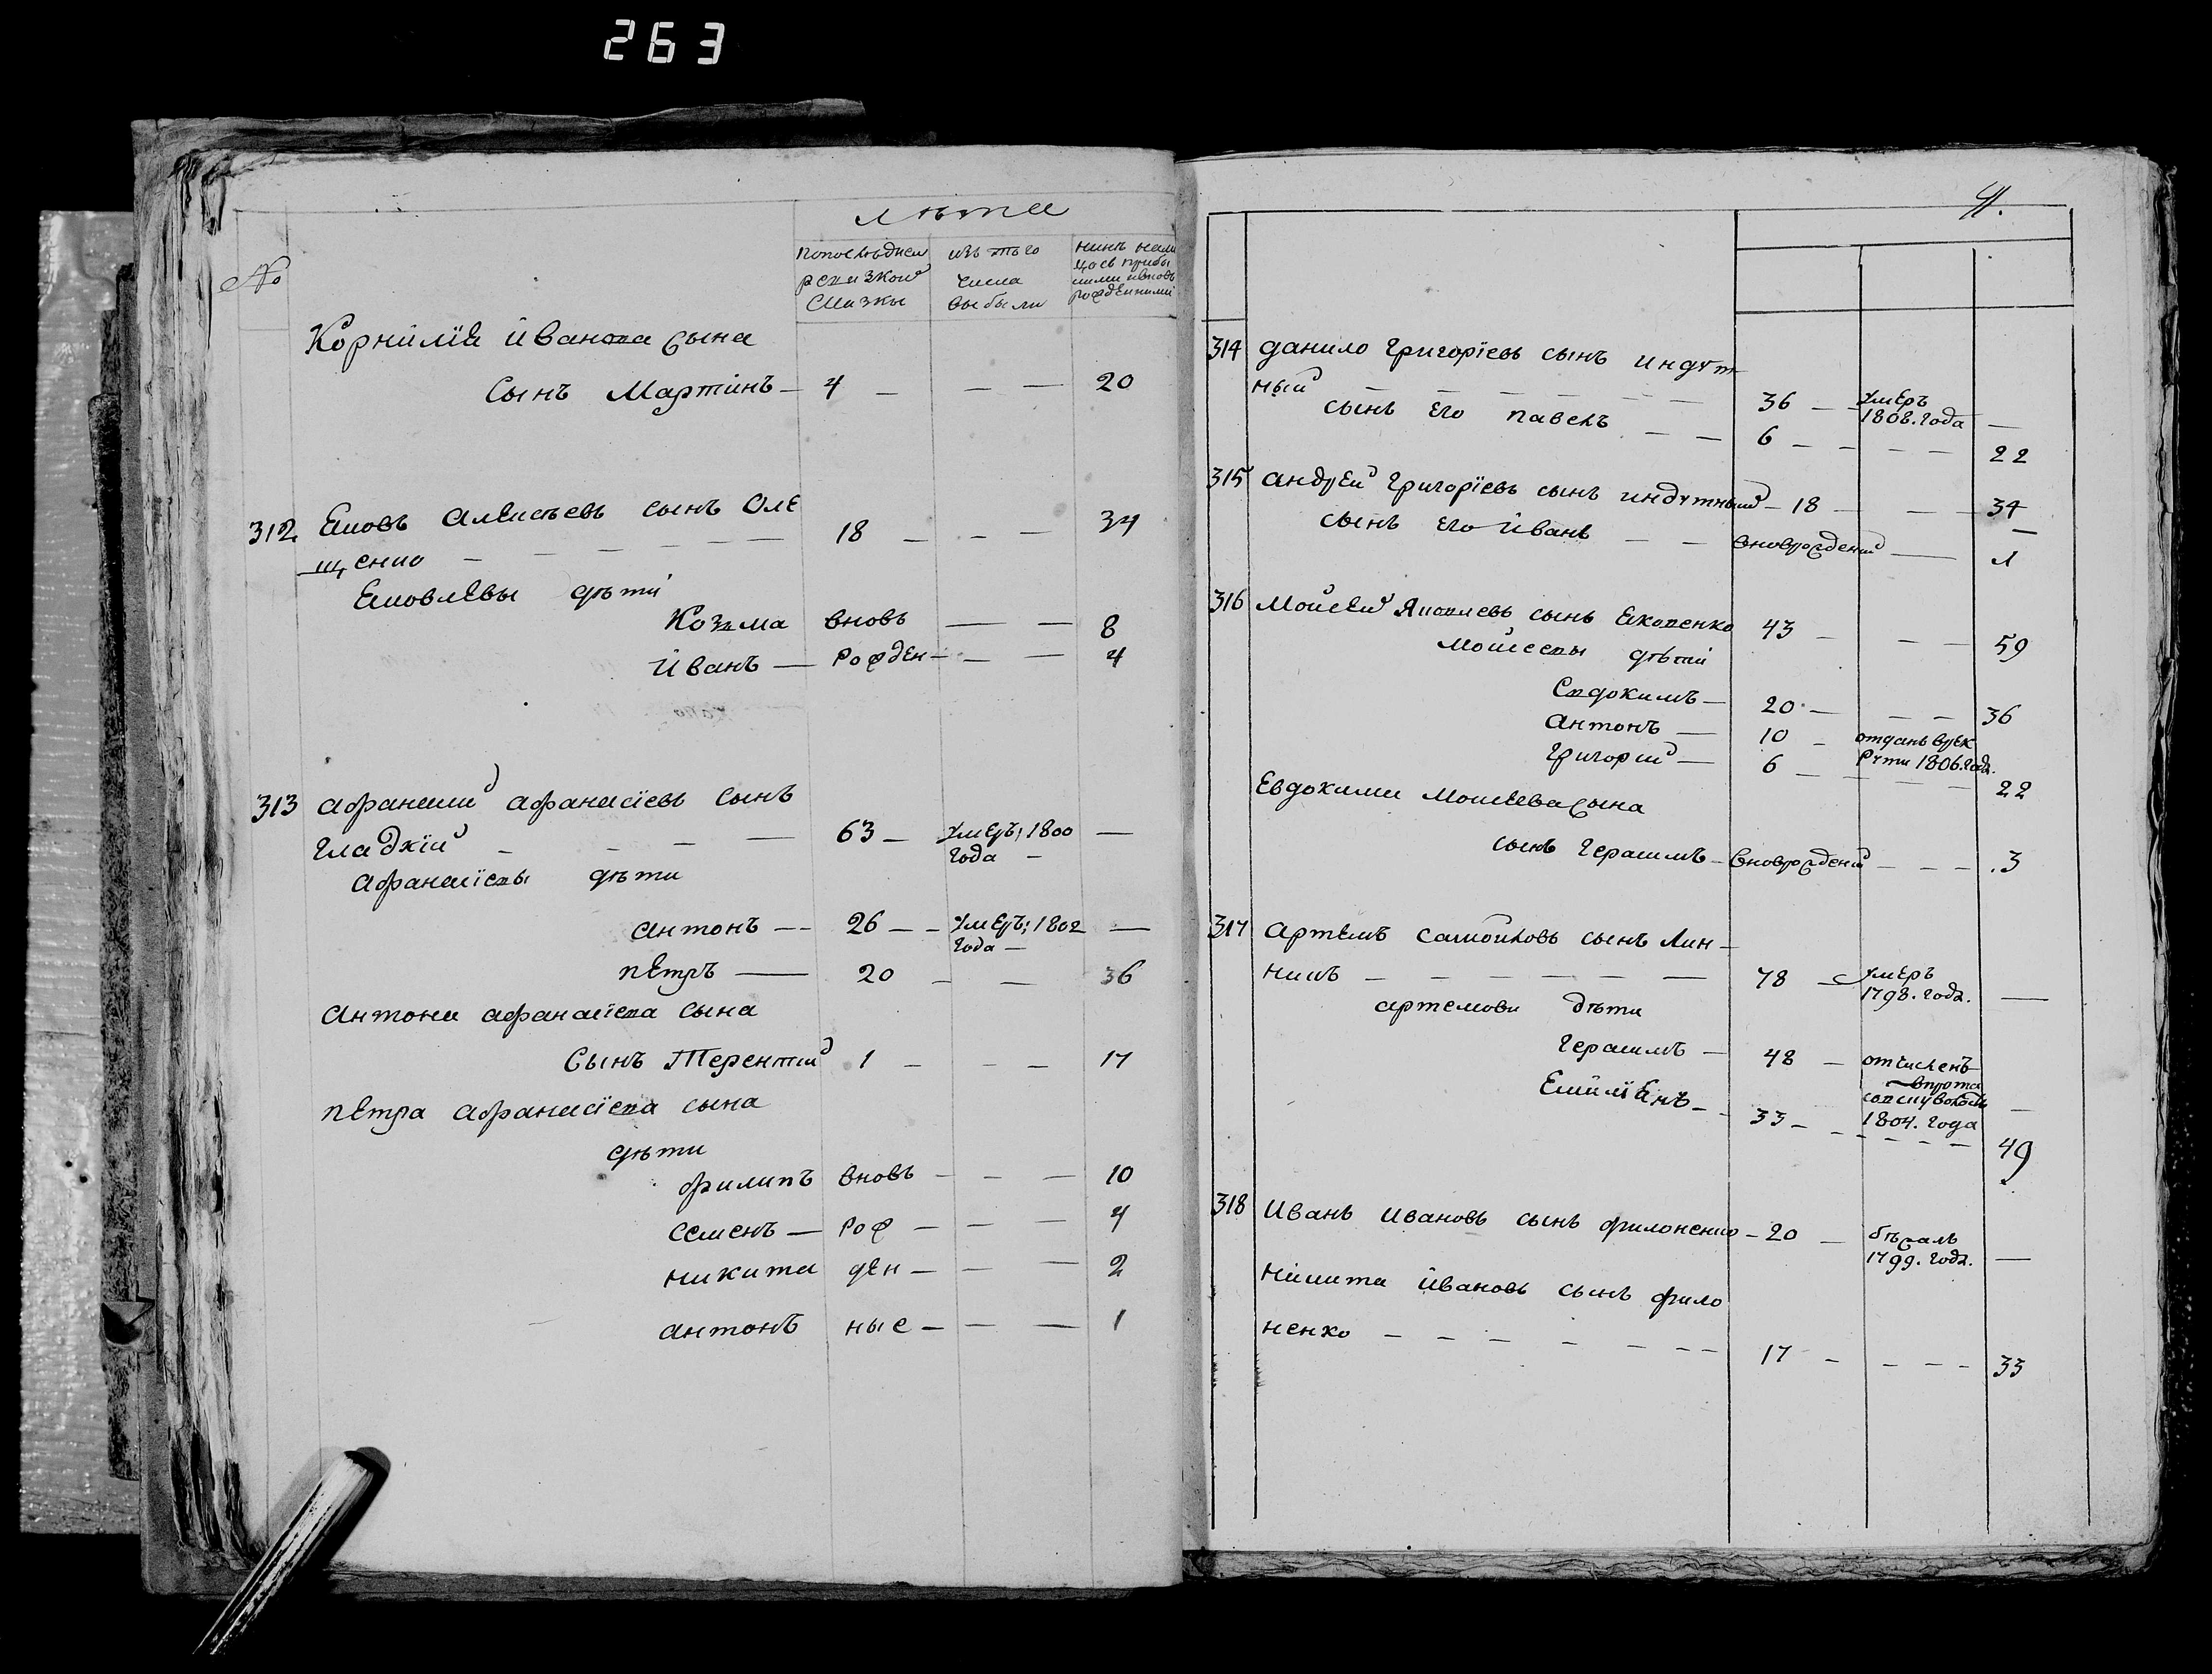 263
лѣта
№
попоследней ревизкой сказки
изъ того числа выбыли
нинѣ налицо съ прибылими ивновь рожденними
Корнилія Иванова сына
сынъ Мартинъ — 4 — — — 20
312 Яковъ Алексѣевъ сынъ Оле
щенко — — — — — — 18 — — — 34
Яковлевы дѣти
Козма вновь — — 8
Иванъ — рожден — — — 4
313 Афанасий Афанасіевъ сынъ
Гладкій — — — — 63 — умеръ; 1800 —
года —
Афанасіевы дѣти
Антонъ — — 26 — — умеръ; 1802 —
года —
Петръ — 20 — — 36
Антона Афанасіева сына
Сынъ Терентий 1 — — — 17
Петра Афанасіева сына
дѣти
Филипъ вновь — — — 10
Семенъ — рож — — — 4
Никита ден — — — 2
Антонъ ные — — — 1
41.
314 Данило Григоріевъ сынъ Индут
ный — — — — — — 36 — умеръ
1808. года —
сынъ его Павелъ — — 6 — — — — 22
315 Андрей Григоріевъ сынъ Индутный — 18 — — 34
сынъ его Иванъ — — вноврожденый — 1
316 Мойсей Яковлевъ сынъ Яковенко 43 — — 59
Мойсеевы дѣти
Евдокимъ — 20 — — — 36
Антонъ — 10 — отданъ врек
рути 1806. года.
Григорий — 6 — — — 22
Евдокима Моисеева сына
сынъ Герасимъ — вноврожденый — — — 3
317 Артемъ Самойловъ сынъ Лин —
никъ — — — — — — 78 — умеръ
1798. года. —
Артемови дѣти
Герасимъ — 48 — отчисленъ
1804. года —
Емиліянъ — — 33 — — — — — 49
318 Иванъ Ивановъ сынъ Филоненко — 20 — бѣжалъ
1799. года. —
Никита Ивановъ сынъ Фило
ненко — — — — — — — 17 — — — — 33